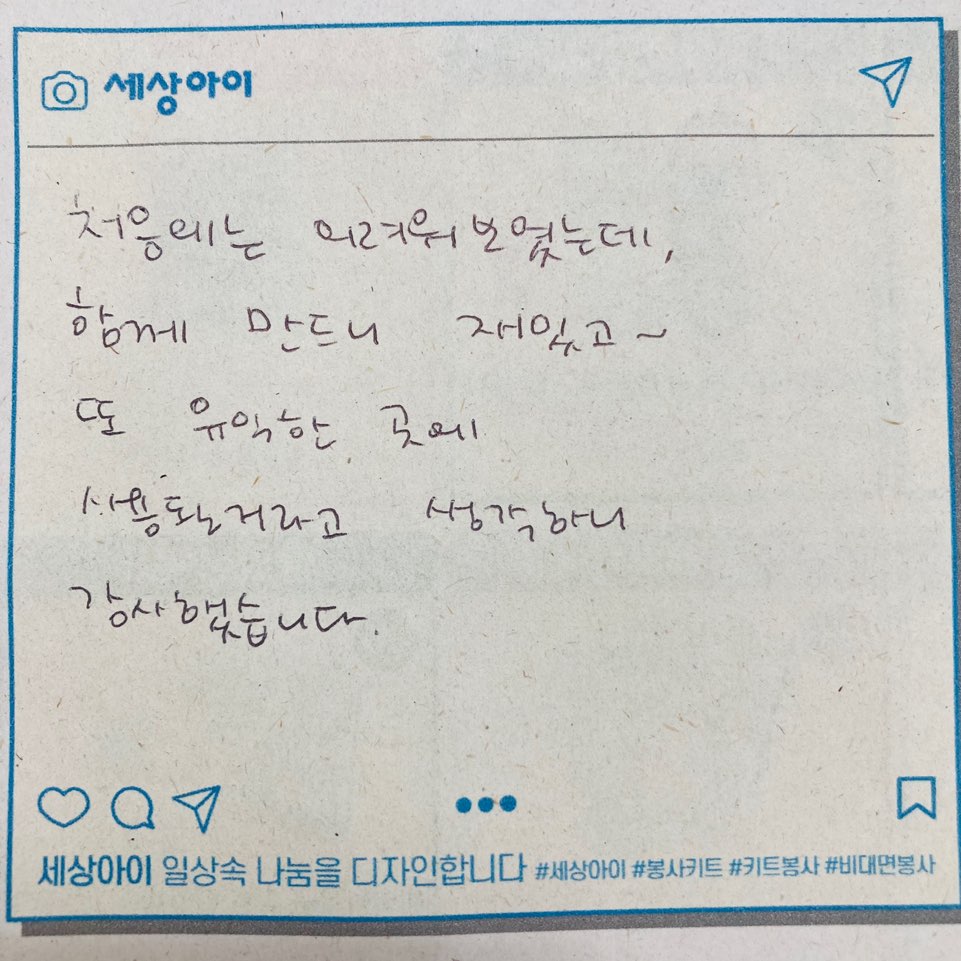 세상아이
처음에는 어려워보였는데,
함께 만드니 재밌고~
또 유익한 곳에
사용되는거라고 생각하니
감사했습니다.
세상아이 일상속 나눔을 디자인합니다 #세상아이 #봉사키트 #키트봉사 #비대면봉사